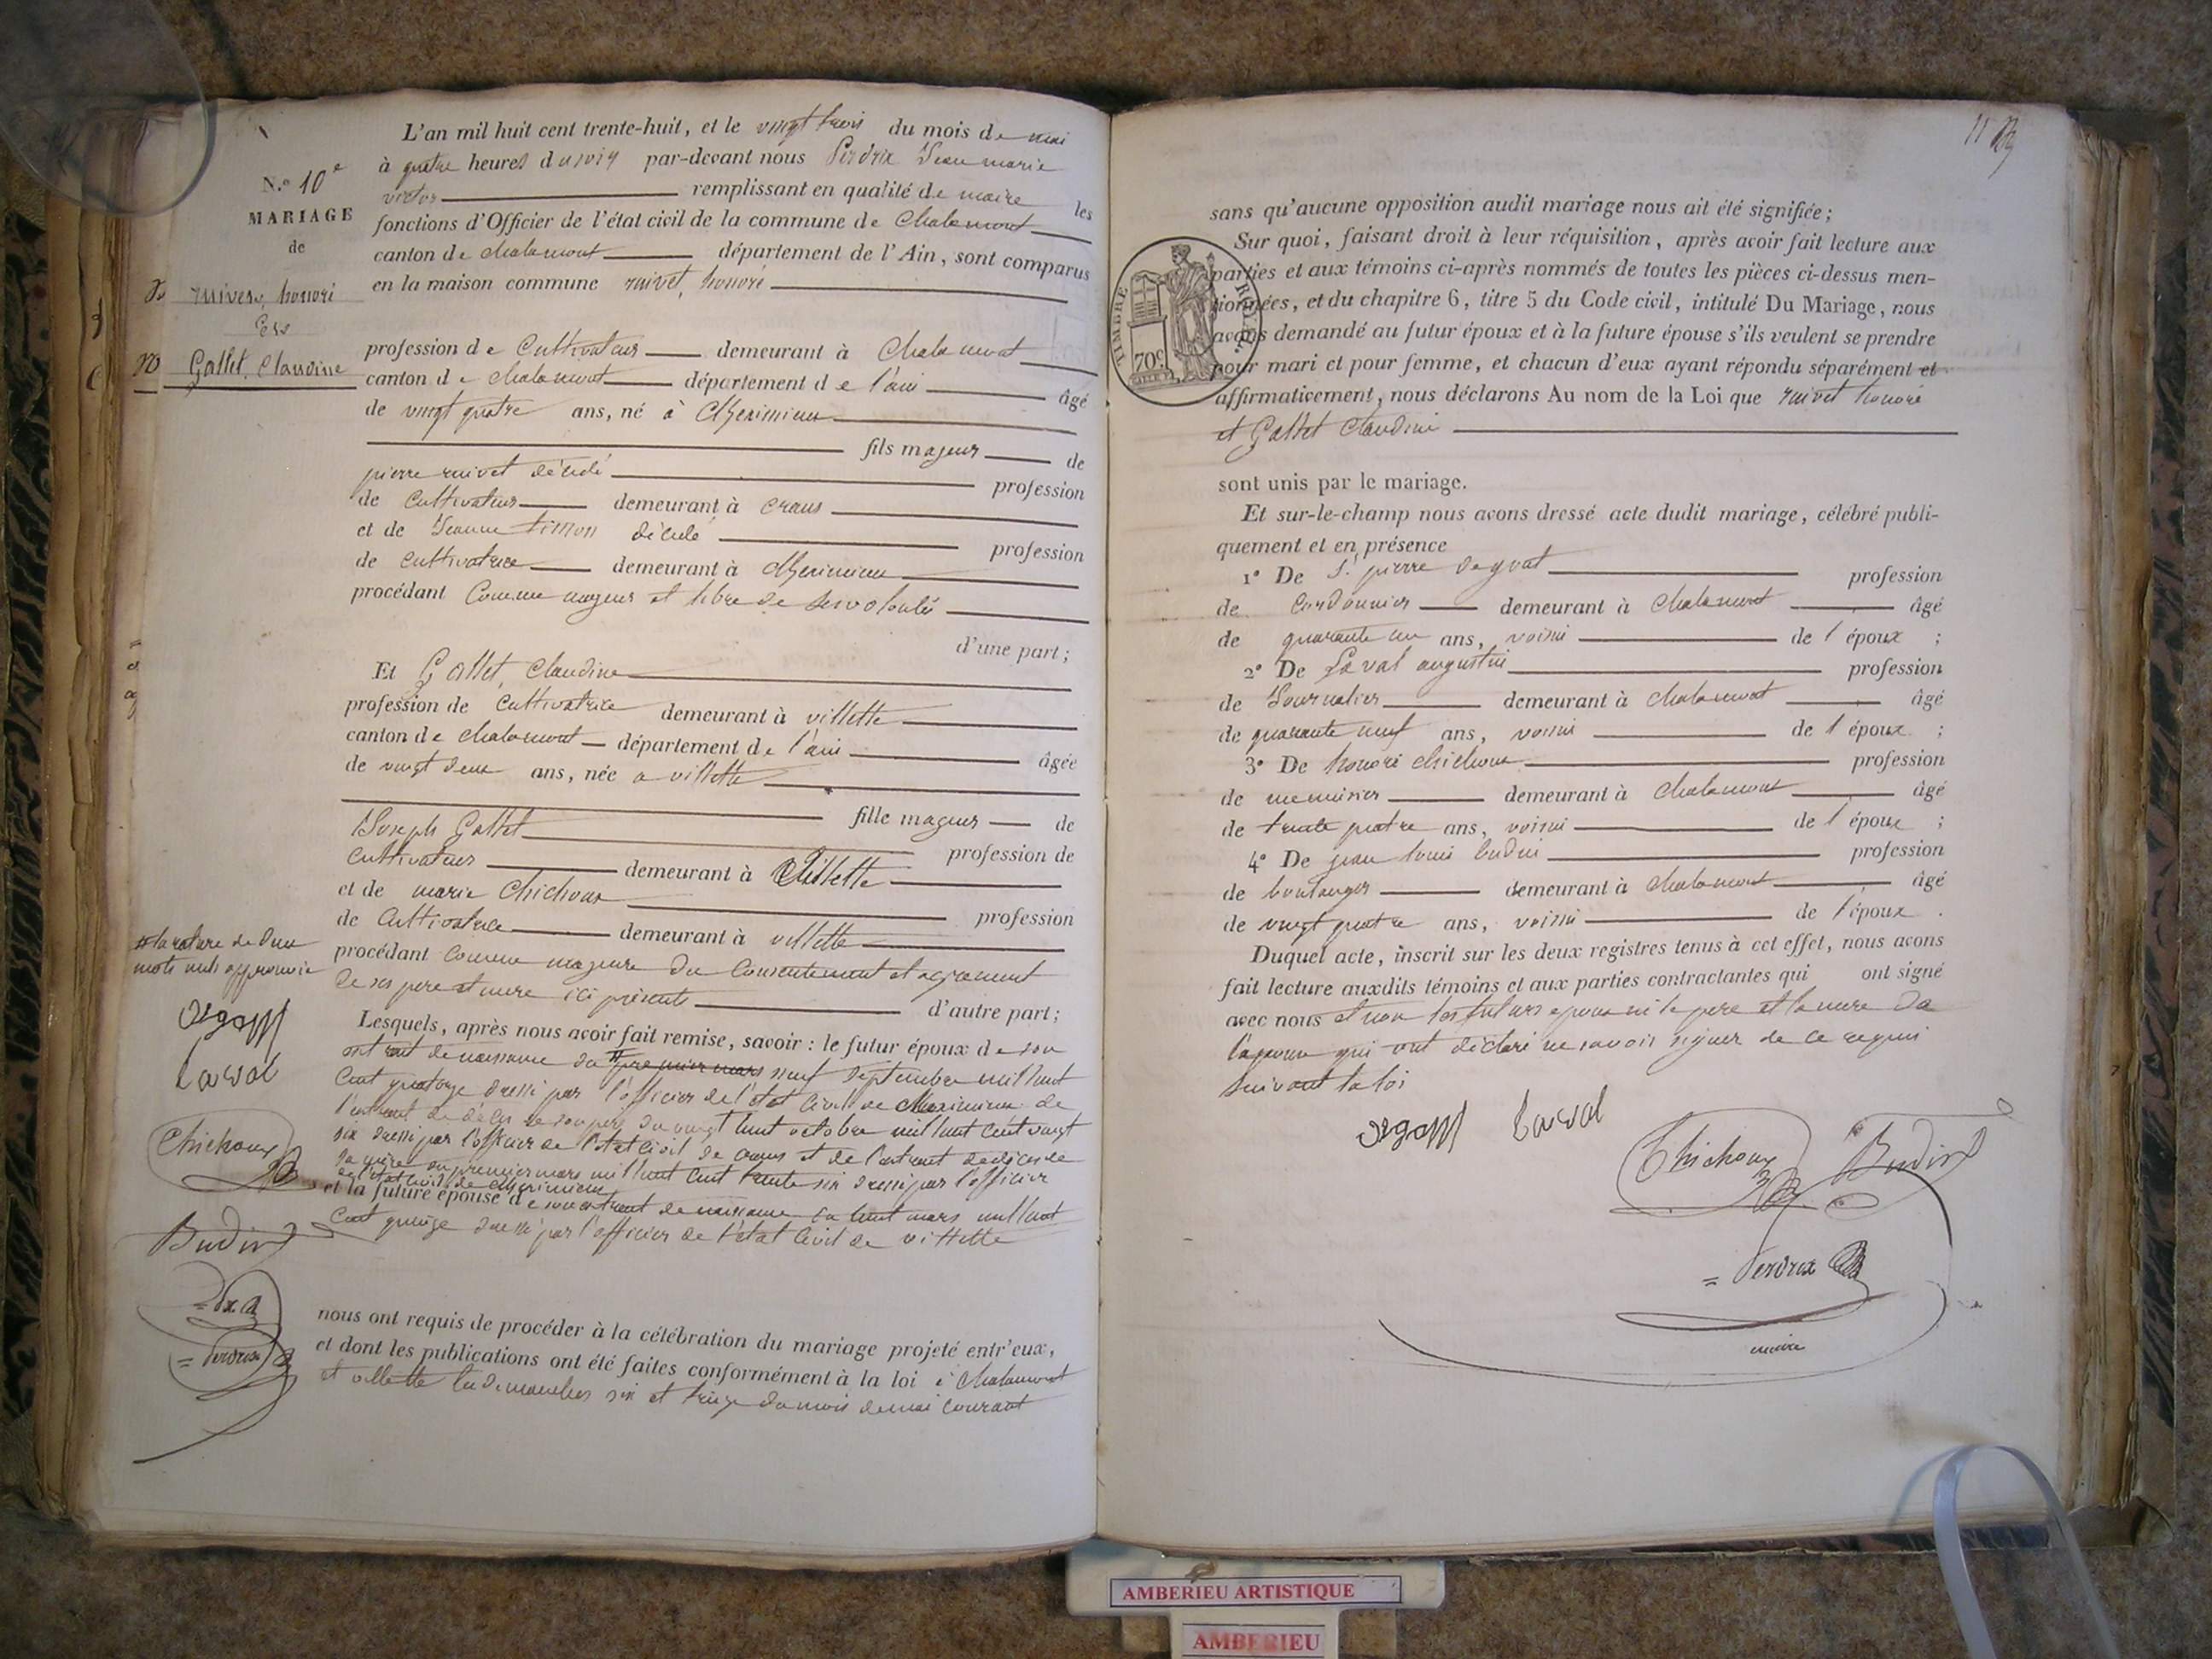 N.º 10e
MARIAGE
de
ruivet, honoré
Et
Gallet, Claudine
L'an mil huit cent trente-huit, et le vingt trois du mois de mai
à quatre heures du soir par-devant nous Perdrix Jean marie
victor remplissant en qualité de maire les
fonctions d'Officier de l'état civil de la commune de Chalamont
canton de chalamont département de l'Ain, sont comparus
en la maison commune ruivet, honoré
profession de Cultivateur demeurant à Chalamont
canton de chalamont département de l'ain âgé
de vingt quatre ans, né à Meximieux
fils majeur de
pierre ruivet décédé profession
de Cultivateur demeurant à crans
et de Jeanne timon décédé profession
de cultivatrice demeurant à Meximieux
procédant Comme majeur et libre de ses volontés
d'une part;
Et Gallet, Claudine
profession de Cultivatrice demeurant à villette
canton de chalamont département de l'ain âgée
de vingt deux ans, née a villette
fille majeur de
Joseph Gallet profession de
cultivateur demeurant à Villette
et de marie Chichoux profession
de Cultivatrice demeurant à villette
procédant comme majeure du Consentement et agrement
de ses pere et mere ici présents d'autre part;
Lesquels, après nous avoir fait remise, savoir : le futur époux de son
extrait de naissance du premier mars neuf septembre mil huit
Cent quatorze dressé par l'officier de l'état Civil de Meximieux de
l'extrait de décès de son père du vingt huit octobre mil huit Cent vingt
six dressé par l'officier de l'état Civil de crans et de l'extrait de décès de
sa mère du premier mars mil huit cent trente six dressé par l'officier
de l'état civil de Meximieux
et la future épouse de son extrait de naissance du huit mars mil huit
Cent quinze dressé par l'officier de l'état Civil de villette
nous ont requis de procéder à la célébration du mariage projeté entr'eux,
et dont les publications ont été faites conformément à la loi à Chalamont
et villette les dimanches six et treize du mois de mai courant
la rature de deux
mots nuls approuvée
Laval
Chichoux
Budin
Perdrix
11
TIMBRE ROYAL
70c.
sans qu'aucune opposition audit mariage nous ait été signifiée;
Sur quoi, faisant droit à leur réquisition, après avoir fait lecture aux
parties et aux témoins ci-après nommés de toutes les pièces ci-dessus men-
tionnées, et du chapitre 6, titre 5 du Code civil, intitulé Du Mariage, nous
avons demandé au futur époux et à la future épouse s'ils veulent se prendre
pour mari et pour femme, et chacun d'eux ayant répondu séparément et
affirmativement, nous déclarons Au nom de la Loi que ruivet honoré
et Gallet Claudine
sont unis par le mariage.
Et sur-le-champ nous avons dressé acte dudit mariage, célébré publi-
quement et en présence
1º De Sr. pierre profession
de Cordonnier demeurant à Chalamont âgé
de quarante un ans, voisin de l'époux ;
2º De Laval augustin profession
de Journalier demeurant à Chalamont âgé
de quarante neuf ans, voisin de l'époux ;
3º De honoré Chichoux profession
de menuisier demeurant à Chalamont âgé
de trente quatre ans, voisin de l'époux ;
4º De jean louis budin profession
de boulanger demeurant à Chalamont âgé
de vingt quatre ans, voisin de l'époux .
Duquel acte, inscrit sur les deux registres tenus à cet effet, nous avons
fait lecture auxdits témoins et aux parties contractantes qui ont signé
avec nous et non les futurs epoux ni le pere et la mere de
l'épouse qui ont déclaré ne savoir signer de ce requis
suivant la loi
Laval
Chichoux
Budin
Perdrix
maire
AMBERIEU ARTISTIQUE
AMBERIEU